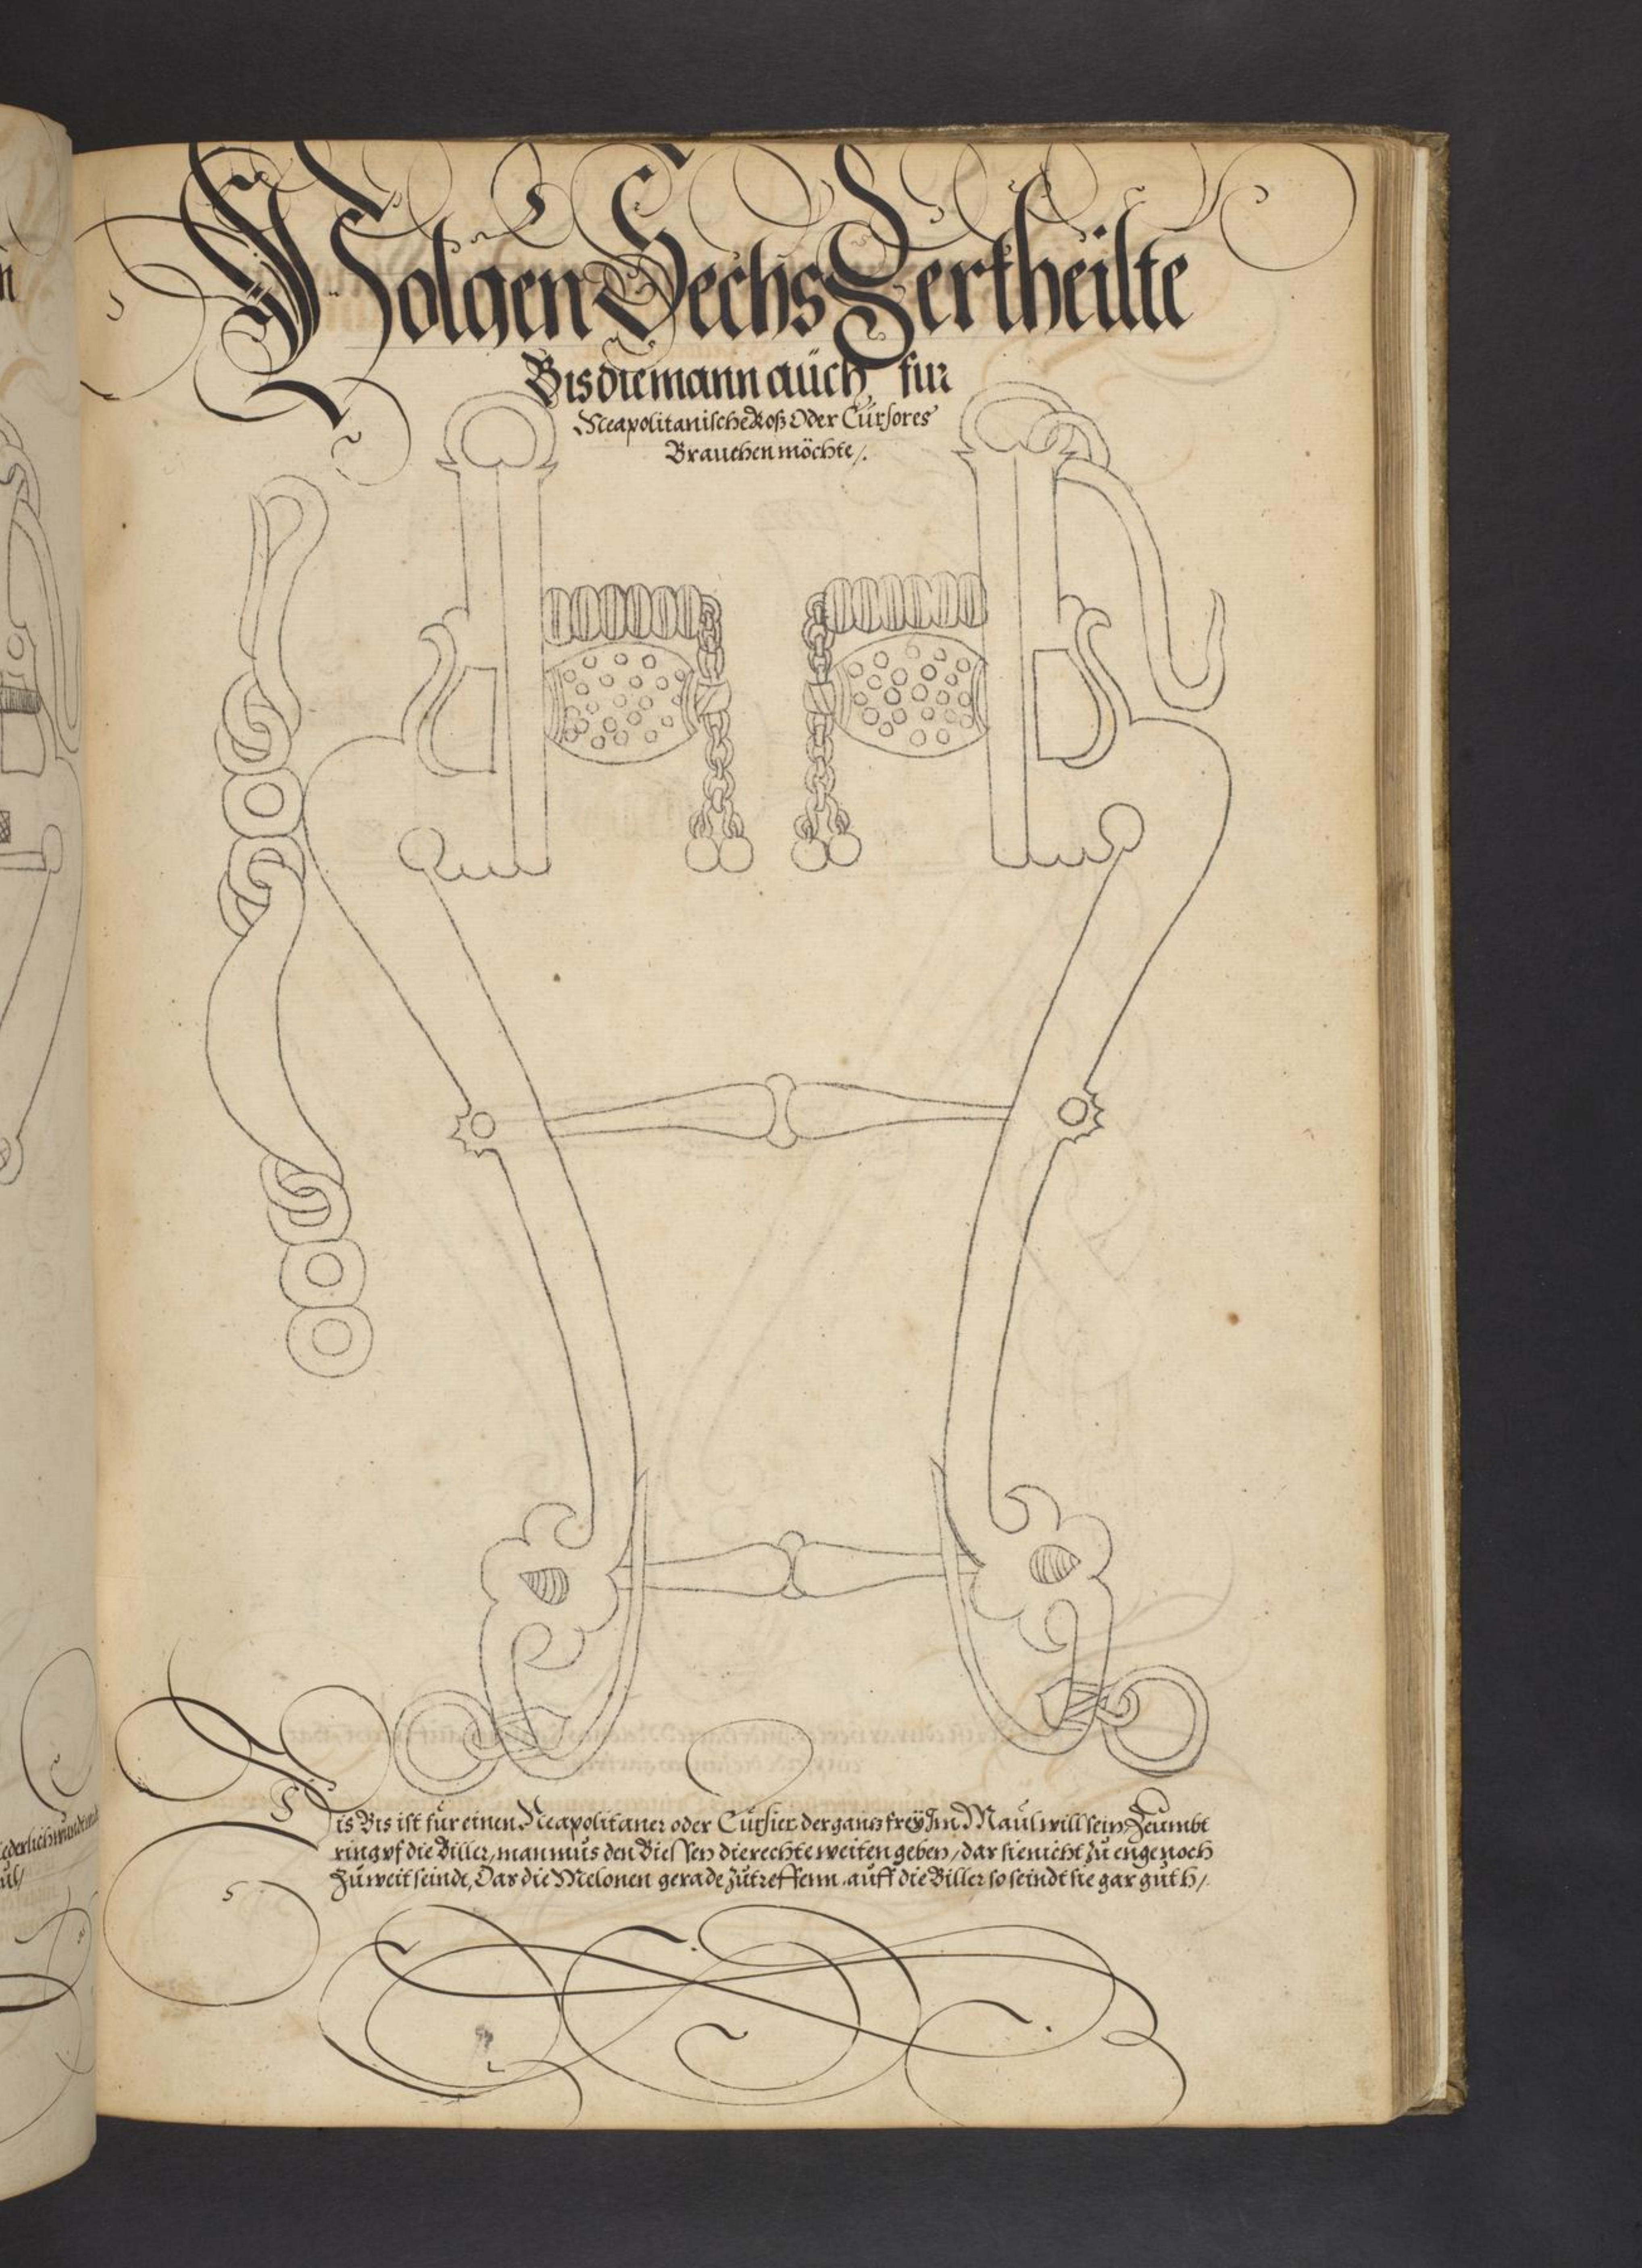 Folgen Sechs Zertheilte
Bis die mann auch fur
Neapolitanische Roß Oder Cursores
Brauchen möchte /.
Dis Bis ist für einen Neapolitaner oder Cursier der gantz freÿ Im Maul will sein Zeümbt
ring vf die Biller, man mus den Biessen die rechte weiten geben / das sie nicht zu enge noch
Zu weit seindt, Das die Melonen gerade zutreffenn auff die Biller so seindt sie gar guth /.